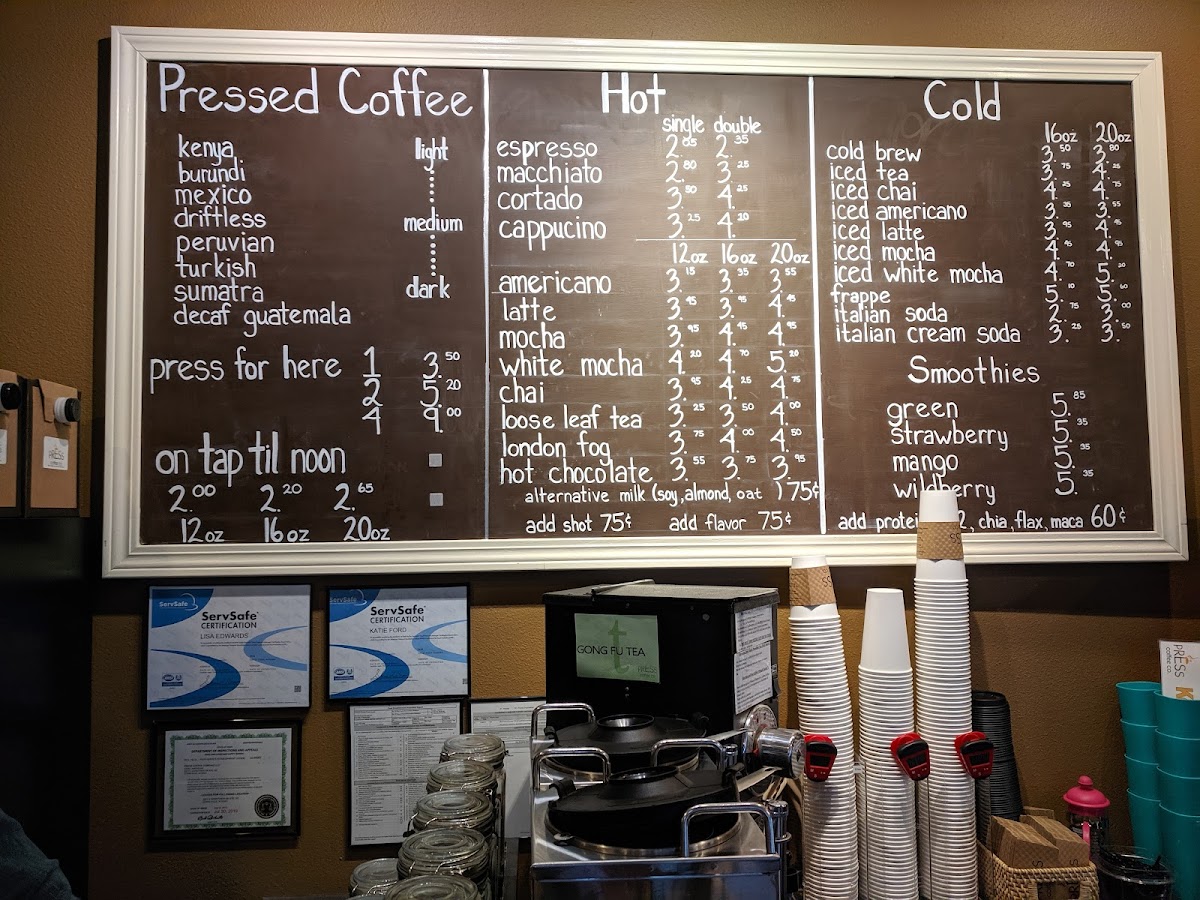 Pressed Coffee
kenya light
burundi
mexico
driftless medium
peruvian
turkish
sumatra dark
decaf guatemala
press for here 1 3.50
2 5.20
4 9.00
on tap til noon
2.00 2.20 2.65
12oz 16oz 20oz
Hot
single double
espresso 2.05 2.35
macchiato 2.80 3.25
cortado 3.50 4.25
cappucino 3.25 4.20
12oz 16oz 20oz
americano 3.15 3.35 3.55
latte 3.45 3.95 4.45
mocha 3.95 4.45 4.95
white mocha 4.20 4.70 5.20
chai 3.95 4.25 4.75
loose leaf tea 3.25 3.50 4.00
london fog 3.75 4.00 4.50
hot chocolate 3.55 3.75 3.95
alternative milk (soy, almond, oat ) 75¢
add shot 75¢ add flavor 75¢
Cold
16oz 20oz
cold brew 3.50 3.80
iced tea 3. 4.
iced chai 4.25 4.75
iced americano 3.35 3.55
iced latte 3.95 4.45
iced mocha 4. 4.95
iced white mocha 4.70 5.20
frappe 5.10 5.
italian soda 2.75 3.00
italian cream soda 3.25 3.50
Smoothies
green 5.85
strawberry 5.35
mango 5.35
wildberry 5.35
add protein 2, chia, flax, maca 60¢
ServSafe
ServSafe
CERTIFICATION
LISA EDWARDS
ServSafe
ServSafe
CERTIFICATION
KATIE FORD
DEPARTMENT OF INSPECTIONS AND APPEALS
t
GONG FU TEA
PRESS
PRESS
PRESS
coffee co.
K